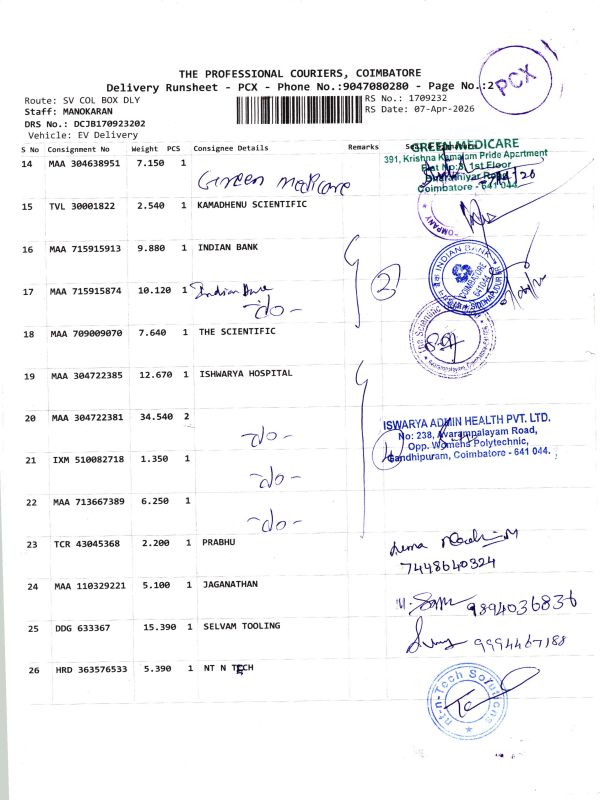 THE PROFESSIONAL COURIERS, COIMBATORE
Delivery Runsheet - PCX - Phone No.:9047080280 - Page No.:2
PCX
Route: SV COL BOX DLY
RS No.: 1709232
Staff: MANOKARAN
RS Date: 07-Apr-2026
DRS No.: DCJB170923202
Vehicle: EV Delivery
S No Consignment No Weight PCS Consignee Details Remarks
14 MAA 304638951 7.150 1 Green medicare
GREEN MEDICARE
391, Krishna Kamalam Pride Apartment
1st Floor
Coimbatore - 641 044.
15 TVL 30001822 2.540 1 KAMADHENU SCIENTIFIC
COMPANY
16 MAA 715915913 9.880 1 INDIAN BANK
2
INDIAN BANK
COIMBATORE
641044
17 MAA 715915874 10.120 1 Indian Bank
-do-
18 MAA 709009070 7.640 1 THE SCIENTIFIC
The Scientific
19 MAA 304722385 12.670 1 ISHWARYA HOSPITAL
20 MAA 304722381 34.540 2
-do-
4
ISWARYA ADMIN HEALTH PVT. LTD.
No: 238, Avarampalayam Road,
Opp. Womens Polytechnic,
Gandhipuram, Coimbatore - 641 044.
21 IXM 510082718 1.350 1
-do-
22 MAA 713667389 6.250 1
-do-
23 TCR 43045368 2.200 1 PRABHU
7448640324
24 MAA 110329221 5.100 1 JAGANATHAN
9894036836
25 DDG 633367 15.390 1 SELVAM TOOLING
9994467188
26 HRD 363576533 5.390 1 NT N TECH
nt-n-Tech Solutions